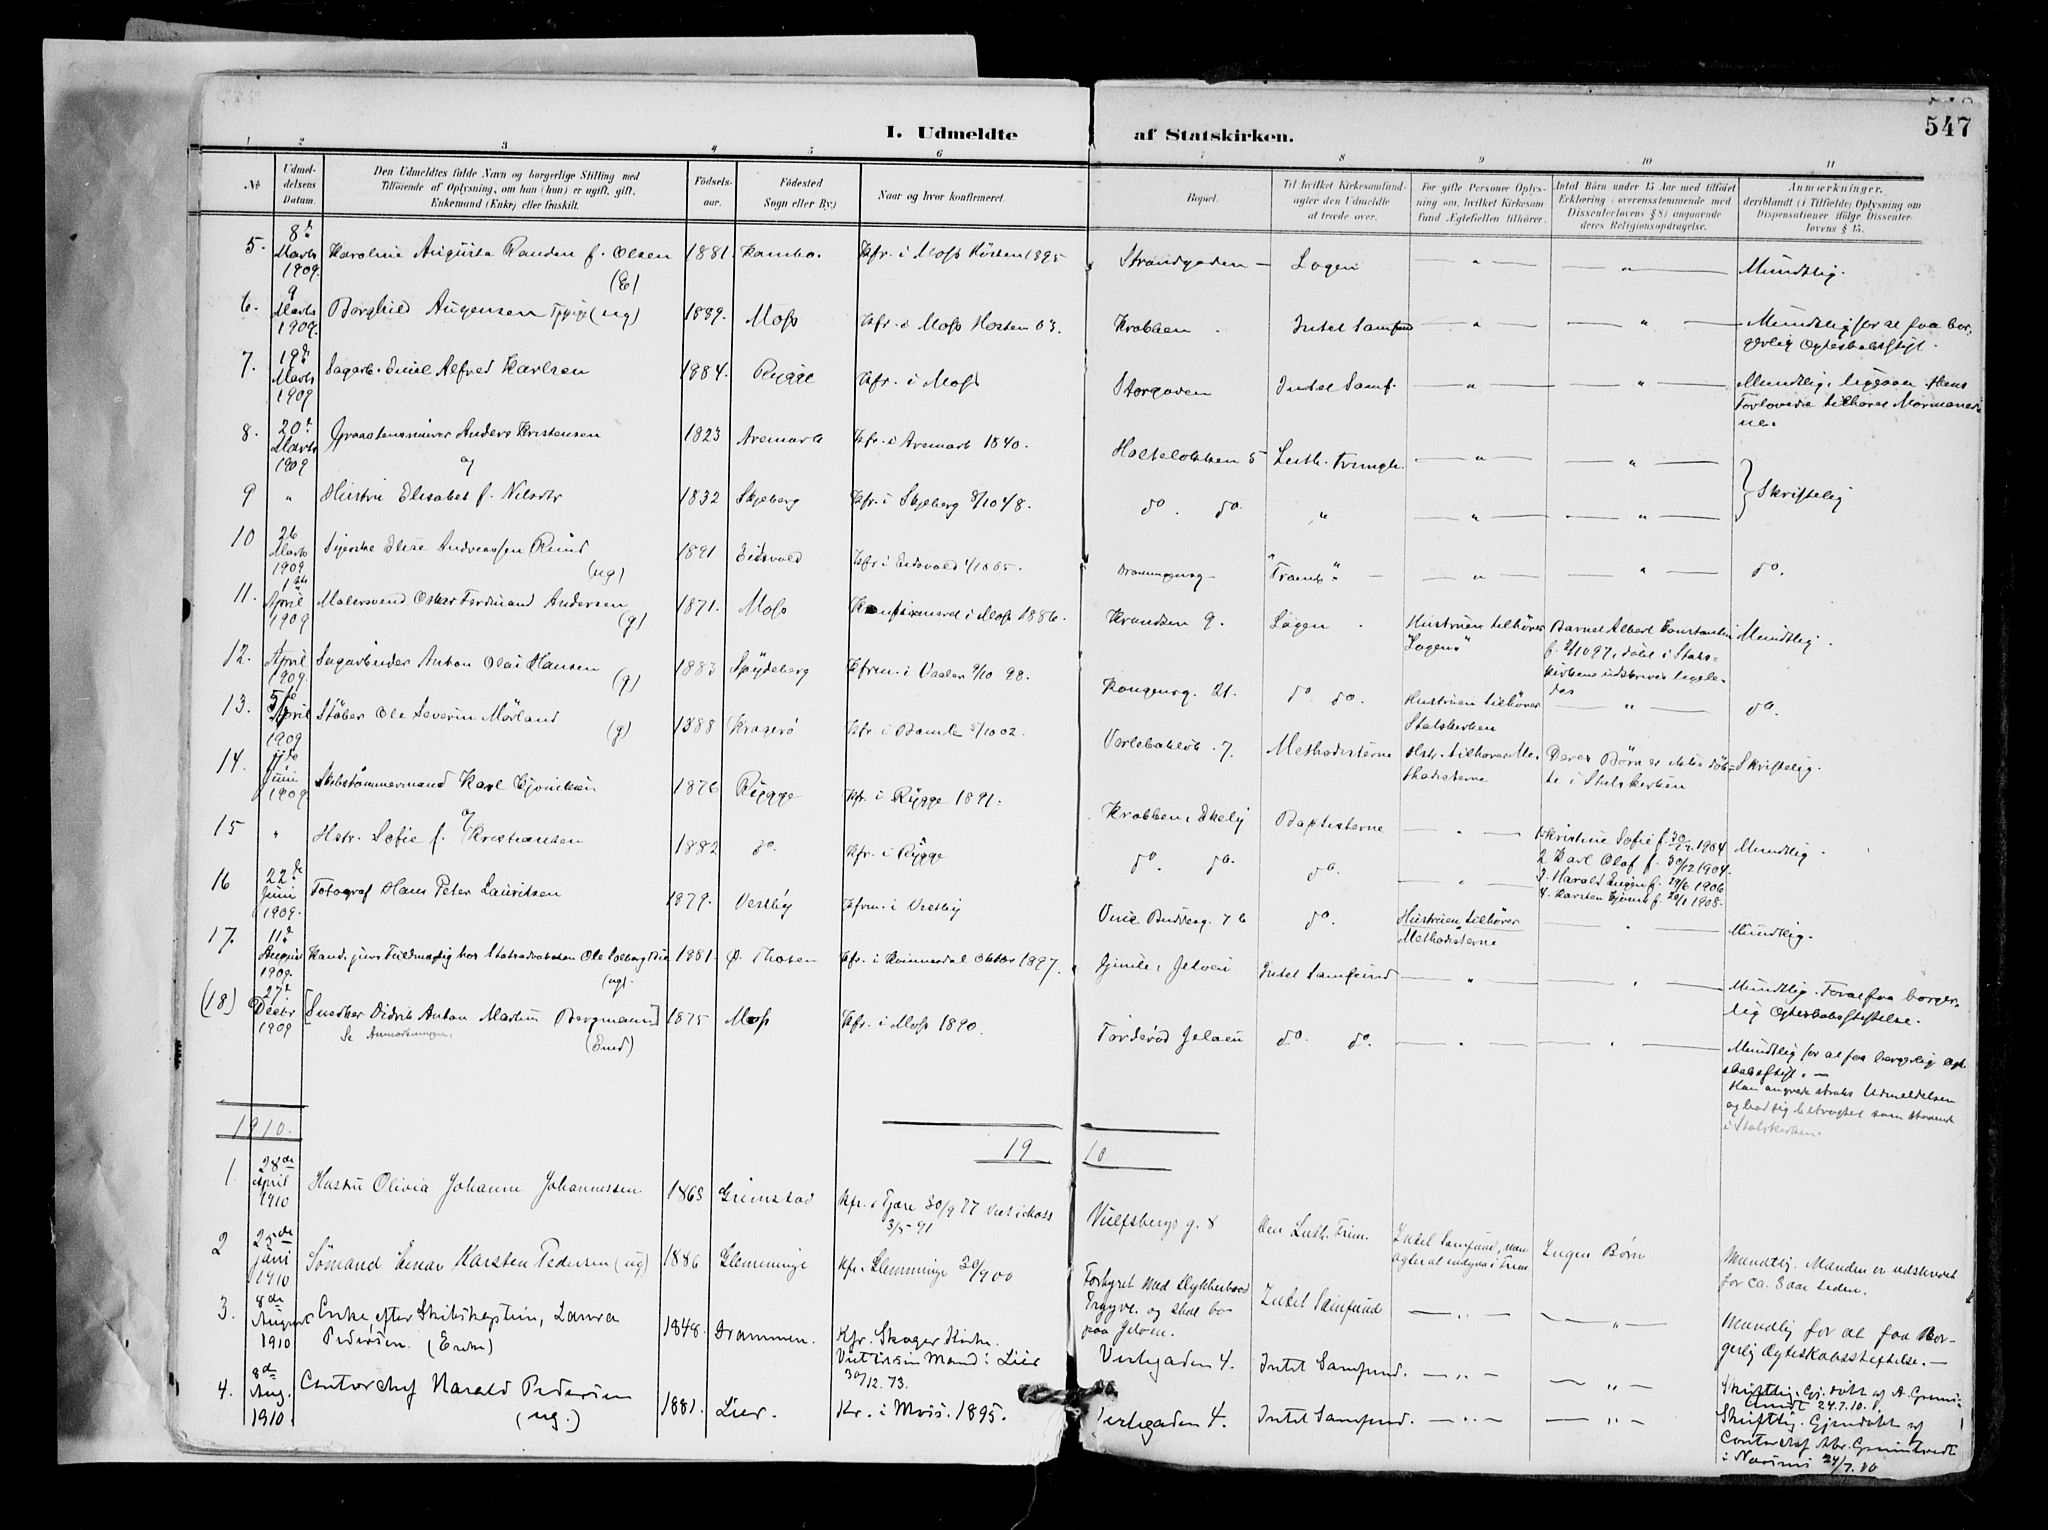 547
I. Udmeldte af Statskirken.
1 2 3 4 5 6 7 8 9 10 11
No
Udmel-
delsens
Datum.
Den Udmeldtes fulde Navn og borgerlige Stilling med
Tilføiende af Oplysning, om han (hun) er ugift, gift,
Enkemand (Enke) eller fraskilt.
Fødsels-
aar.
Fødested
Sogn eller By.)
Naar og hvor konfirmeret.
Bopæl.
Til hvilket Kirkesamfund
agter den Udmeldte
at træde over.
For gifte Personer Oplys-
ning om, hvilket Kirkesam-
fund Ægtefællen tilhører.
Antal Børn under 15 Aar med tilføiet
Erklæring (overensstemmende med
Dissenterlovens § 8) angaaende
deres Religionsopdragelse.
Anmærkninger,
deriblandt (i Tilfælde) Oplysning om
Dispensationer ifølge Dissenter-
lovens § 15.
5. 8de Marts 1909. Karoline Augusta Randen f. Olsen (E) 1881. Kambo. Kfr. i Moss Høsten 1895 Strandgaden Logen " " Mundtlig.
6. 9 Marts 1909. Borghild Augensen (ug) 1889. Moss Kfr. i Moss Høsten 03. Krabben Intet Samfund " " Mundtlig for at faa bor-
gerlig Ægteskabsstift.
7. 19de Marts 1909 Sagarb. Emil Alfred Karlsen 1884. Rygge Kfr. i Moss Storgaden Intet Samf. " " Mundtlig, ligesaa. Hans
Forlovede tilhører Mormoner-
ne.
8. 20de Marts 1909 Anders Kristensen 1823 Aremark Kfr. i Aremark 1840. 5 Luth. Frimgh. " "
og
9 " Hustru Elisabet f. Nilsdtr 1832 Skjeberg Kfr. i Skjeberg 8/10 48. do. do. " " " Skriftelig
10 26 Marts 1909 Syerske Elise Andreassen Rund (ug) 1891 Eidsvold Kfr i Eidsvold 1/10 05. Dronningensg "Frank" " " do.
11. 1ste April 1909 Malersvend Oskar Ferdinand Andersen (g) 1871. Moss Konfirmeret i Moss 1886. 9. Logen Hustruen tilhører
"Logen" Barnet Albert Konstantin
f. 2/10 97, døbt i Stats-
kirken udskrives ligele-
des Mundtlig.
12. April 1909. Sagarbeider Anton Olai Hansen (g) 1883 Spydeberg Kfrm. i Vaaler 9/10 98. Kongensg. 21. do do. Hustruen tilhører
Statskirken " do.
13. 5te April 1909 Støber Ole Severin Mørland (g) 1888 Kragerø Kfr. i Bamle 5/10 02. Varlebakløb. 7. Methodisterne Hstr. tilhører Me-
thodisterne Deres Børn er ikke døb-
te i Statskirken Skriftelig.
14. 17de Juni 1909 Skibstømmermand Karl Gjønitsen 1876 Rygge Kfr. i Rygge 1891. Krabben, Ekely Baptisterne " 1. Kristine Sofie f. 1904 Mundtlig
og
15 " Hstr. Sofie f. Kristiansen 1882 do. Kfr. i Rygge do. do. do. " 2 Karl Olaf f. 30/12 1904.
3. Harald Eugen f. 29/6 1906
4. Karsten f. 20/1 1908.
16 22de Juni 1909. Fotograf Hans Peter Lauritsen 1879. Vestby Kfrm. i Vestby 76 do. Hustruen tilhører
Methodisterne " Mundtlig.
17. 11de August 1909. Kand. jur. Fuldmægtig hos Statsadvokaten Ole Solberg (ug). 1881. Ø. Thoten Kfr. i Kvinnesdal Oktbr 1897. Gimle, Jeløen Intet Samfund " " Mundtlig. For at faa borger-
lig Ægteskabsstiftelse.
(18) 27de Decbr 1909 [Snedker Didrik Anton Martin Bergmann] 1875 Moss Kfr. i Moss 1890. Torderød Jeløen do. do. " " Mundtlig for at faa borgerlig Ægte-
skabsstift. —
Se Anmærkningen. (Enkd) Han angrede straks Udmeldelsen
og bad sig betragtet som staaende
i Statskirken.
1910.
19 10
1. 28de April 1910 Hustru Olivia Johanne Johannessen 1863 Grimstad Kfr. i Fjære 30/9 77 Viet i Moss
3/5 91 Vulfsbergs g. 8 Den Luth. Frim. Intet Samfund, men
agter at indgaa i Frim Ingen Børn Mundtlig. Manden er udskrevet
for ca. 8 aar siden.
2 25de juni 1910 Sømand Einar Karsten Pedersen (ug) 1886 Glemminge Kfr. Glemminge 30/9 00 Forhyret med Dykkerbaad
Trygve. og skal bo
paa Jeløen. Intet Samfund " " Mundtlig for at faa Bor-
gerlig Ægteskabsstiftelse. —
3. 8de August 1910 Enke efter Skibskaptein, Laura
Pedersen. (Enke) 1848. Drammen. Kfr. Skoger Kirke.
Viet til sin Mand i Lier
30/12. 73. Verlegaden 4. Intet Samfund. " " Skriftlig. Gj. døbt af A. Grun-
24.7.10.
4. 8de Aug. 1910 Contorchef Harald Pedersen
(ug.) 1881. Lier. Kr. i Moss. 1895. Verlegaden 4. Intet Samfund. " " Skriftlig. Gjendøbt af
Contorchef Abr. Grundtvedt
i 24/7.10